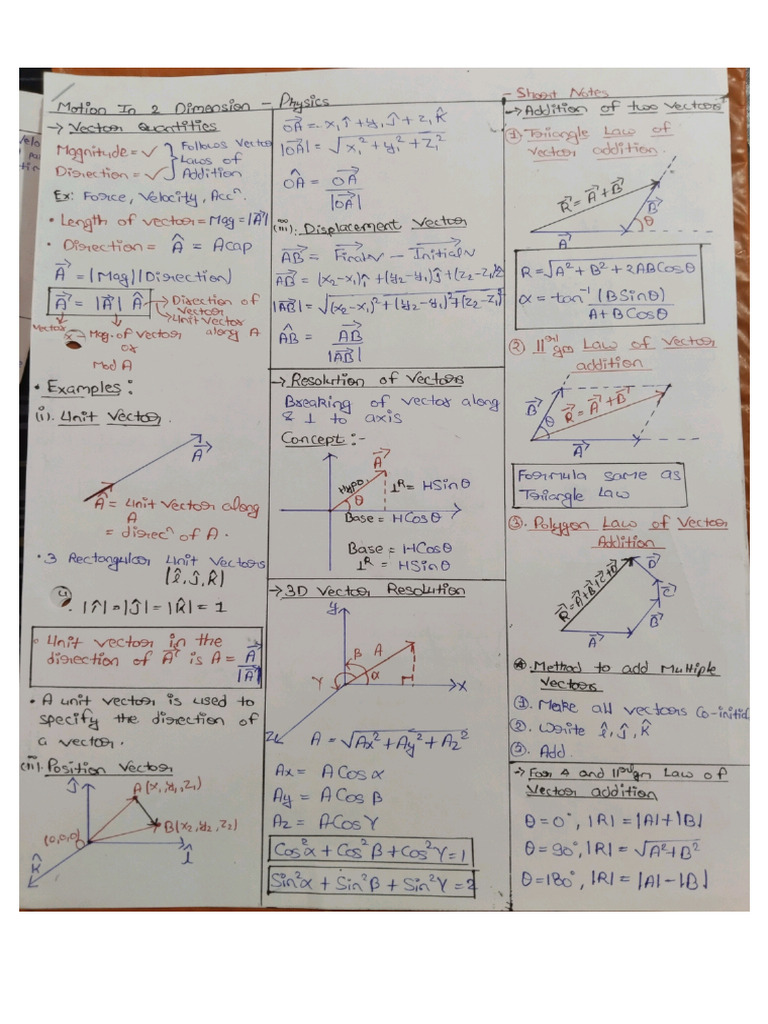 Motion In 2 Dimension - Physics
- Short Notes
→ Vector Quantities
Magnitude = ✓
Direction = ✓
Follows Vector
Laws of
Addition
Ex: Force, Velocity, Accⁿ.
• Length of vector = Mag = |A⃗|
• Direction = Â = A cap
A⃗ = |Mag| |Direction|
A⃗ = |A⃗| Â → Direction of
vector
→ Unit vector
along A
Vector
Mag. of vector
or
Mod A
• Examples:
(i). Unit Vector.
A⃗
Â = Unit vector along
A
= direcⁿ of A.
• 3 Rectangular Unit Vectors
|î, ĵ, k̂|
|î| = |ĵ| = |k̂| = 1
• Unit vector in the
direction of A⃗ is A = A⃗/|A⃗|
• A unit vector is used to
specify the direction of
a vector.
(ii). Position Vector
ĵ
A(x₁,y₁,z₁)
B(x₂,y₂,z₂)
(0,0,0)
k̂
î
OA⃗ = x₁î + y₁ĵ + z₁k̂
|OA⃗| = √x₁² + y₁² + z₁²
OÂ = OA⃗/|OA⃗|
(iii). Displacement Vector
AB⃗ = Final N - Initial N
AB⃗ = (x₂-x₁)î + (y₂-y₁)ĵ + (z₂-z₁)k̂
|AB⃗| = √(x₂-x₁)² + (y₂-y₁)² + (z₂-z₁)²
AB̂ = AB⃗/|AB⃗|
→ Resolution of Vectors
Breaking of vector along
& ⊥ to axis
Concept :-
A⃗
Hypo.
θ
⊥R = HSinθ
Base = HCosθ
Base = HCosθ
⊥R = HSinθ
→ 3D Vector Resolution
y
β A
γ α
x
z
A = √Ax² + Ay² + Az²
Ax = A Cos α
Ay = A Cos β
Az = A Cos γ
Cos²α + Cos²β + Cos²γ = 1
Sin²α + Sin²β + Sin²γ = 2
→ Addition of two Vectors
① Triangle Law of
vector addition.
R⃗ = A⃗ + B⃗
B⃗
θ
A⃗
R = √A² + B² + 2ABCosθ
α = tan⁻¹ (BSinθ)/A + BCosθ
② llgm Law of Vector
addition
B⃗
θ
R⃗ = A⃗ + B⃗
A⃗
Formula same as
Triangle Law
③. Polygon Law of Vector
Addition
D⃗
R⃗ = A⃗+B⃗+C⃗+D⃗
C⃗
B⃗
A⃗
Method to add Multiple
Vectors
①. Make all vectors Co-initial
②. Write î, ĵ, k̂
③. Add.
→ For Δ and llgm Law of
Vector addition
θ = 0°, |R| = |A| + |B|
θ = 90°, |R| = √A² + B²
θ = 180°, |R| = |A| - |B|